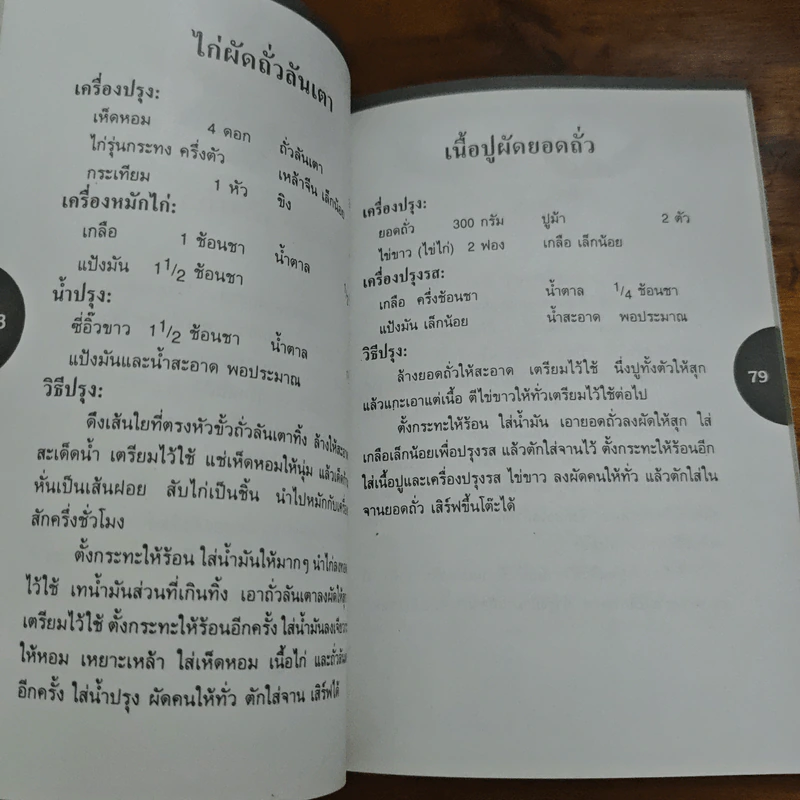 ไก่ผัดถั่วลันเตา
เครื่องปรุง:
เห็ดหอม 4 ดอก ถั่วลันเตา
ไก่รุ่นกระทง ครึ่งตัว เหล้าจีน เล็กน้อย
กระเทียม 1 หัว ขิง
เครื่องหมักไก่:
เกลือ 1 ช้อนชา น้ำตาล
แป้งมัน 1 1/2 ช้อนชา
น้ำปรุง:
ซี่อิ๊วขาว 1 1/2 ช้อนชา น้ำตาล
แป้งมันและน้ำสะอาด พอประมาณ
วิธีปรุง:
ดึงเส้นใยที่ตรงหัวขั้วถั่วลันเตาทิ้ง ล้างให้สะอาด
สะเด็ดน้ำ เตรียมไว้ใช้ แช่เห็ดหอมให้นุ่ม แล้วเด็ด
หั่นเป็นเส้นฝอย สับไก่เป็นชิ้น นำไปหมักกับ
สักครึ่งชั่วโมง
ตั้งกระทะให้ร้อน ใส่น้ำมันให้มากๆ นำไก่ลง
ไว้ใช้ เทน้ำมันส่วนที่เกินทิ้ง เอาถั่วลันเตาลงผัดให้
เตรียมไว้ใช้ ตั้งกระทะให้ร้อนอีกครั้ง ใส่น้ำมันลง
ให้หอม เหยาะเหล้า ใส่เห็ดหอม เนื้อไก่ และถั่ว
อีกครั้ง ใส่น้ำปรุง ผัดคนให้ทั่ว ตักใส่จาน เสิร์ฟได้
เนื้อปูผัดยอดถั่ว
เครื่องปรุง:
ยอดถั่ว 300 กรัม ปูม้า 2 ตัว
ไข่ขาว (ไข่ไก่) 2 ฟอง เกลือ เล็กน้อย
เครื่องปรุงรส:
เกลือ ครึ่งช้อนชา น้ำตาล 1/4 ช้อนชา
แป้งมัน เล็กน้อย น้ำสะอาด พอประมาณ
วิธีปรุง:
ล้างยอดถั่วให้สะอาด เตรียมไว้ใช้ นึ่งปูทั้งตัวให้สุก
แล้วแกะเอาแต่เนื้อ ตีไข่ขาวให้ทั่วเตรียมไว้ใช้ต่อไป
ตั้งกระทะให้ร้อน ใส่น้ำมัน เอายอดถั่วลงผัดให้สุก ใส่
เกลือเล็กน้อยเพื่อปรุงรส แล้วตักใส่จานไว้ ตั้งกระทะให้ร้อนอีก
ใส่เนื้อปูและเครื่องปรุงรส ไข่ขาว ลงผัดคนให้ทั่ว แล้วตักใส่ใน
จานยอดถั่ว เสิร์ฟขึ้นโต๊ะได้
79